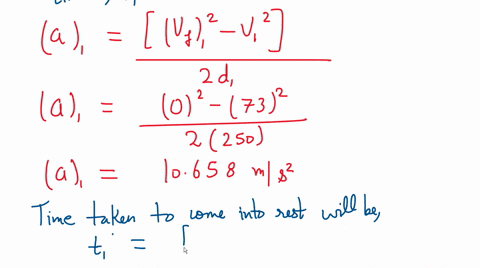 (a)₁ = [(V_f)₁² − V₁²] / 2d₁
(a)₁ = (0)² − (73)² / 2(250)
(a)₁ = 10.658 m/s²
Time taken to come into rest will be,
t₁ = [